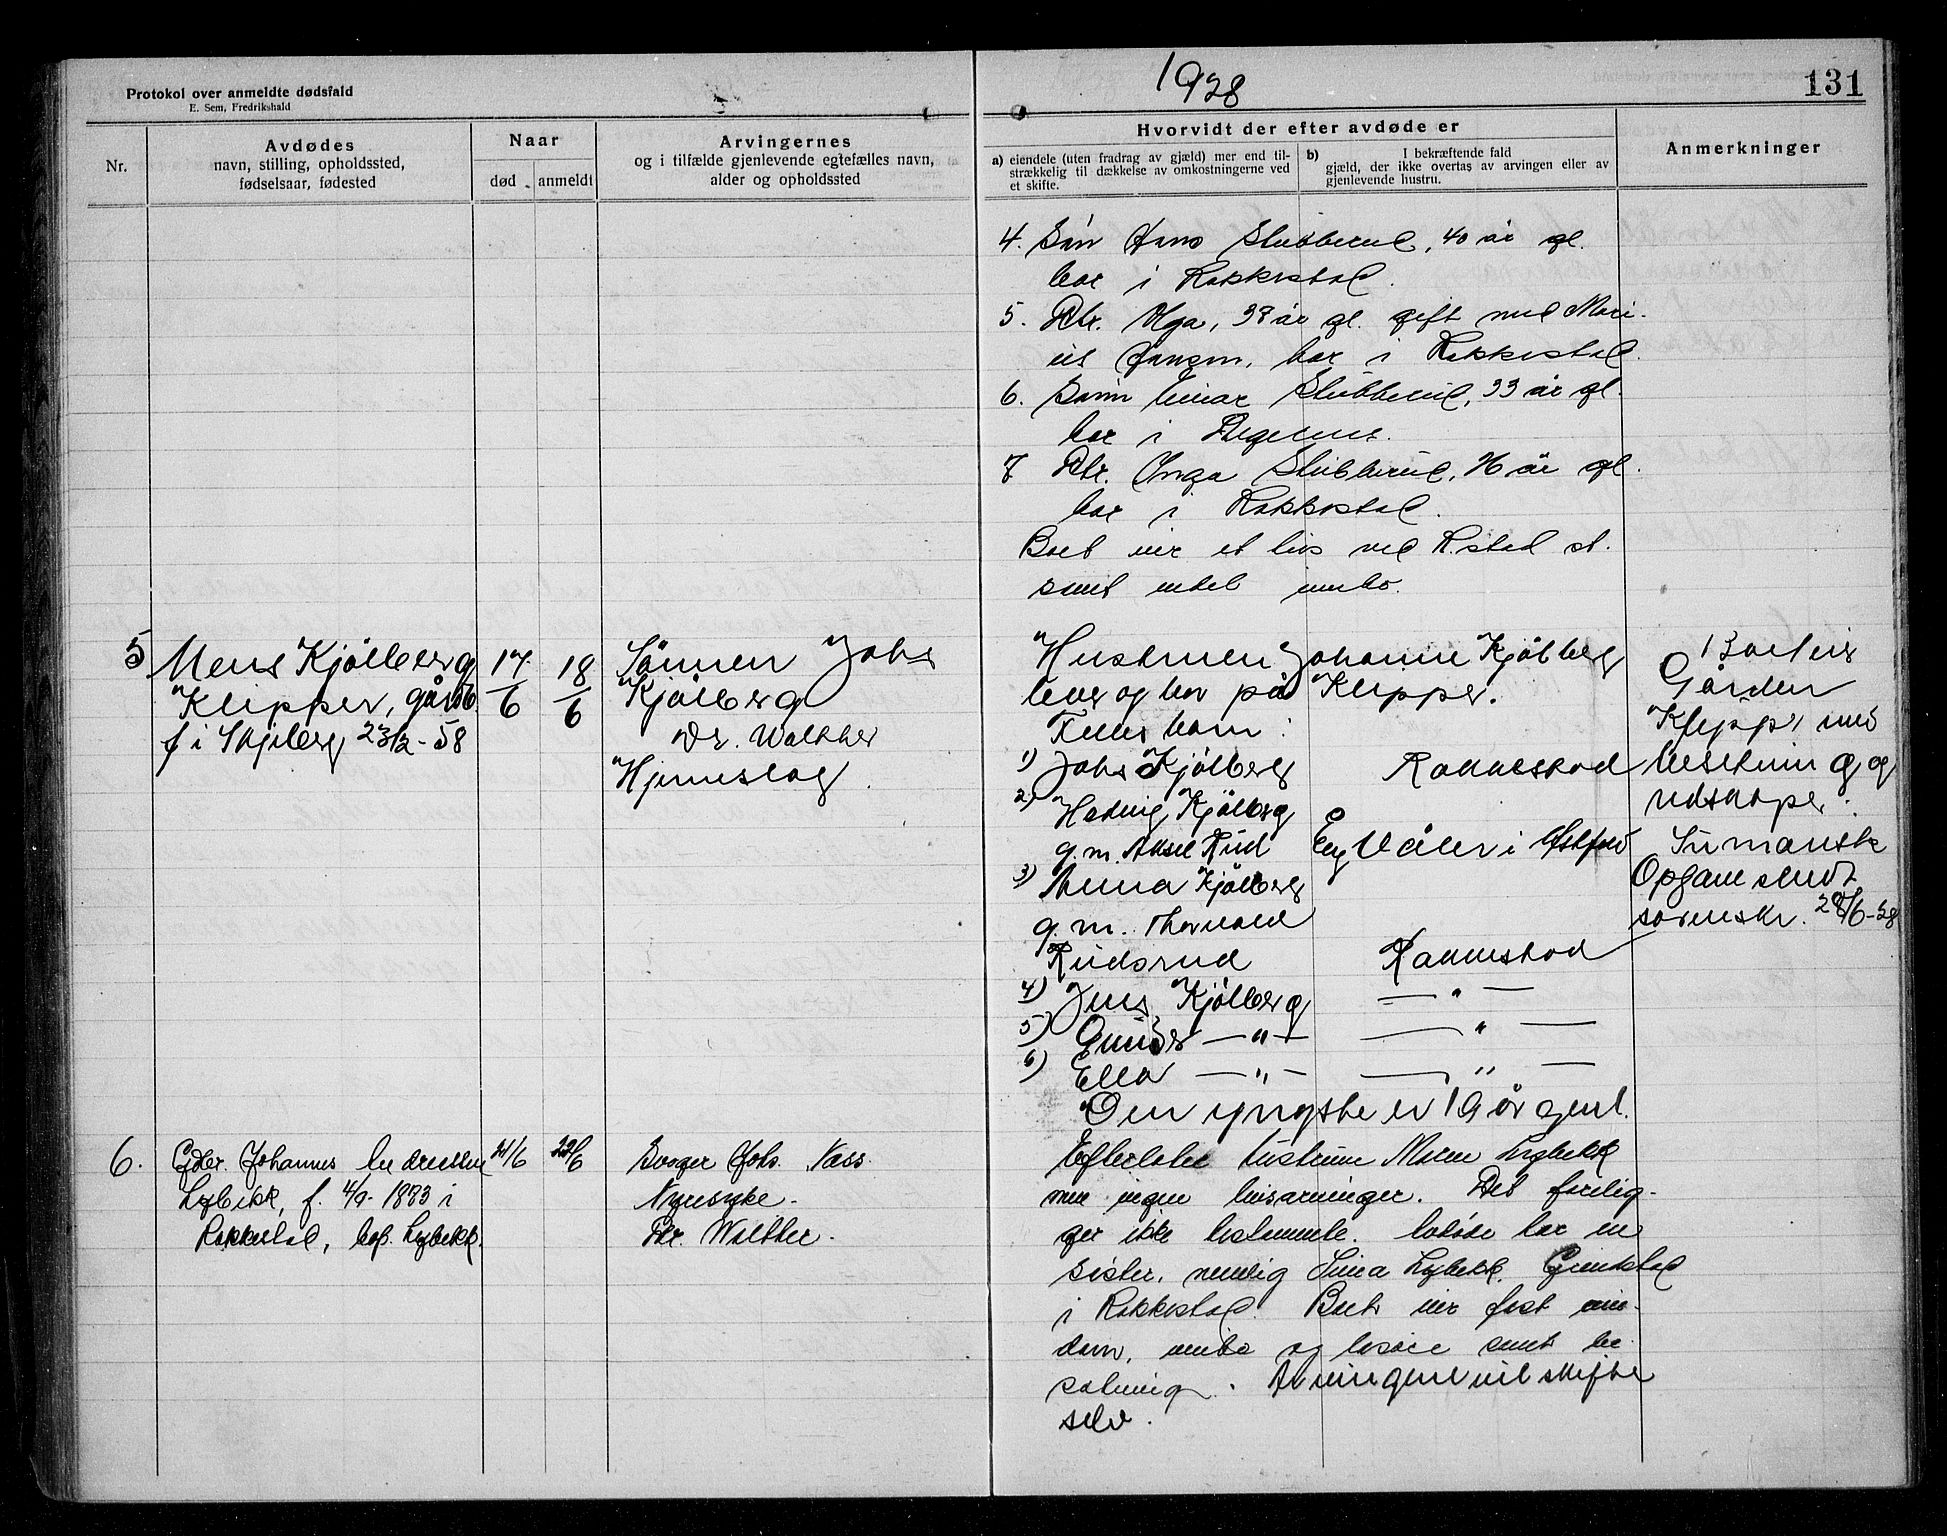 1928
131
Protokol over anmeldte dødsfald
E. Sem, Fredrikshald
Nr.
Avdødes
navn, stilling, opholdssted,
fødselsaar, fødested
Naar
død
anmeldt
Arvingernes
og i tilfælde gjenlevende egtefælles navn,
alder og opholdssted
Hvorvidt der efter avdøde er
a) eiendele (uten fradrag av gjæld) mer end til-
strækkelig til dækkelse av omkostningerne ved
et skifte.
b) I bekræftende fald
gjæld, der ikke overtas av arvingen eller av
gjenlevende hustru.
Anmerkninger
4. Sön Hans Stubberud, 40 år gl.
bor i Rakkestad.
5. Dtr. Olga, 38 år gl. gift med Mari-
us Jensen, bor i Rakkestad.
6. Sönn Einar Stubberud, 33 år gl.
bor i Degernes.
7 Dtr. Inga Stubberud, 26 år gl.
bor i Rakkestad.
Boet eier et hus ved R.stad st.
samt endel innbo.
5 Mens Kjölberg
Klipper, gårdb.
f i Skjeberg 23/2-58
17/6
18/6
Sönnen Johs
Kjölberg
Dr. Walther
Hjerneslag.
Hustruen Johanne Kjölberg
lever og bor på Klipper.
Felles barn:
1) Johs Kjölberg Rakkestad
2) Hedvig Kjölberg
g.m. Aksel Rud Våler i Østfold
3) Anna Kjölberg
g.m. Thorvald
Rudsrud Rakkestad
4) Jens Kjölberg — " —
5) Gunder — " — — " —
6) Ella — " — — " —
Den yngste er 19 år gml.
Boet eier
Gården
Klipper med
besetning og
redskaper.
Opgave sendt
sorenskr. 28/6-28
6. Gdbr. Johannes Andreassen
Lybekk, f. 4/9-1883 i
Rakkestad, bop. Lybekk.
21/6
22/6
Svoger Johs. Næss.
Nyresyke.
Dr. Walther.
Efterlater hustruen Maren Lybekk
men ingen livsarvinger. Det forelig-
ger ikke testamente. Avdøde har en
søster, nemlig Lina Lybekk, Grimstad
i Rakkestad. Boet eier fast eien-
dom, innbo og løsøre samt be-
setning. Arvingene vil skifte
selv.